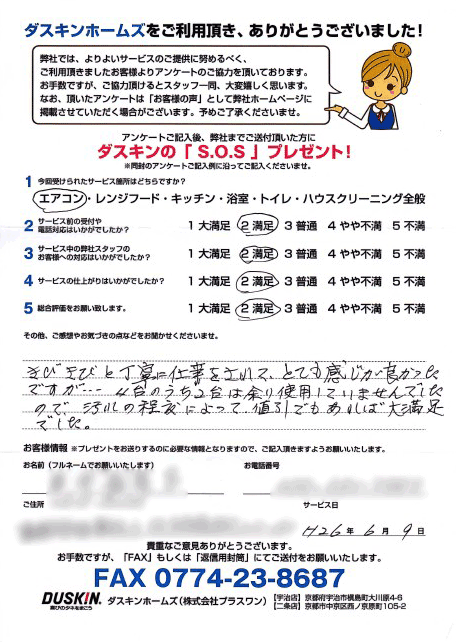 ダスキンホームズをご利用頂き、ありがとうございました!
弊社では、よりよいサービスのご提供に努めるべく、
ご利用頂きましたお客様よりアンケートのご協力を頂いております。
お手数ですが、ご協力頂けるとスタッフ一同、大変嬉しく思います。
なお、頂いたアンケートは「お客様の声」として弊社ホームページに
掲載させていただく場合がございます。予めご了承くださいませ。
アンケートご記入後、弊社までご送付頂いた方に
ダスキンの「 S.O.S 」プレゼント!
※同封のアンケートご記入例に沿ってご記入くださいませ。
1 今回受けられたサービス箇所はどちらですか?
エアコン・レンジフード・キッチン・浴室・トイレ・ハウスクリーニング全般
2 サービス前の受付や
電話対応はいかがでしたか? 1 大満足 2 満足 3 普通 4 やや不満 5 不満
3 サービス中の弊社スタッフの
お客様への対応はいかがでしたか? 1 大満足 2 満足 3 普通 4 やや不満 5 不満
4 サービスの仕上がりはいかがでしたか? 1 大満足 2 満足 3 普通 4 やや不満 5 不満
5 総合評価をお願い致します。 1 大満足 2 満足 3 普通 4 やや不満 5 不満
その他、ご感想やお気づきの点などをお聞かせくださいませ。
きびきびと丁寧に仕事をされて、とても感じが良かった
ですが… 4台のうち2台は余り使用していませんでした
ので 汚れの程度によって、値引でもあれば大満足
でした。
お客様情報 ※プレゼントをお送りするのに必要な情報となりますので、ご記入頂きますようお願いいたします。
お名前(フルネームでお願いいたします) お電話番号
ご住所 サービス日
H26年 6月 9日
貴重なご意見ありがとうございます。
お手数ですが、「FAX」もしくは「返信用封筒」にてご送付をお願いいたします。
FAX 0774-23-8687
DUSKIN. 喜びのタネをまこう ダスキンホームズ(株式会社プラスワン) 【宇治店】京都府宇治市槇島町大川原4-6
【二条店】京都市中京区西ノ京原町105-2